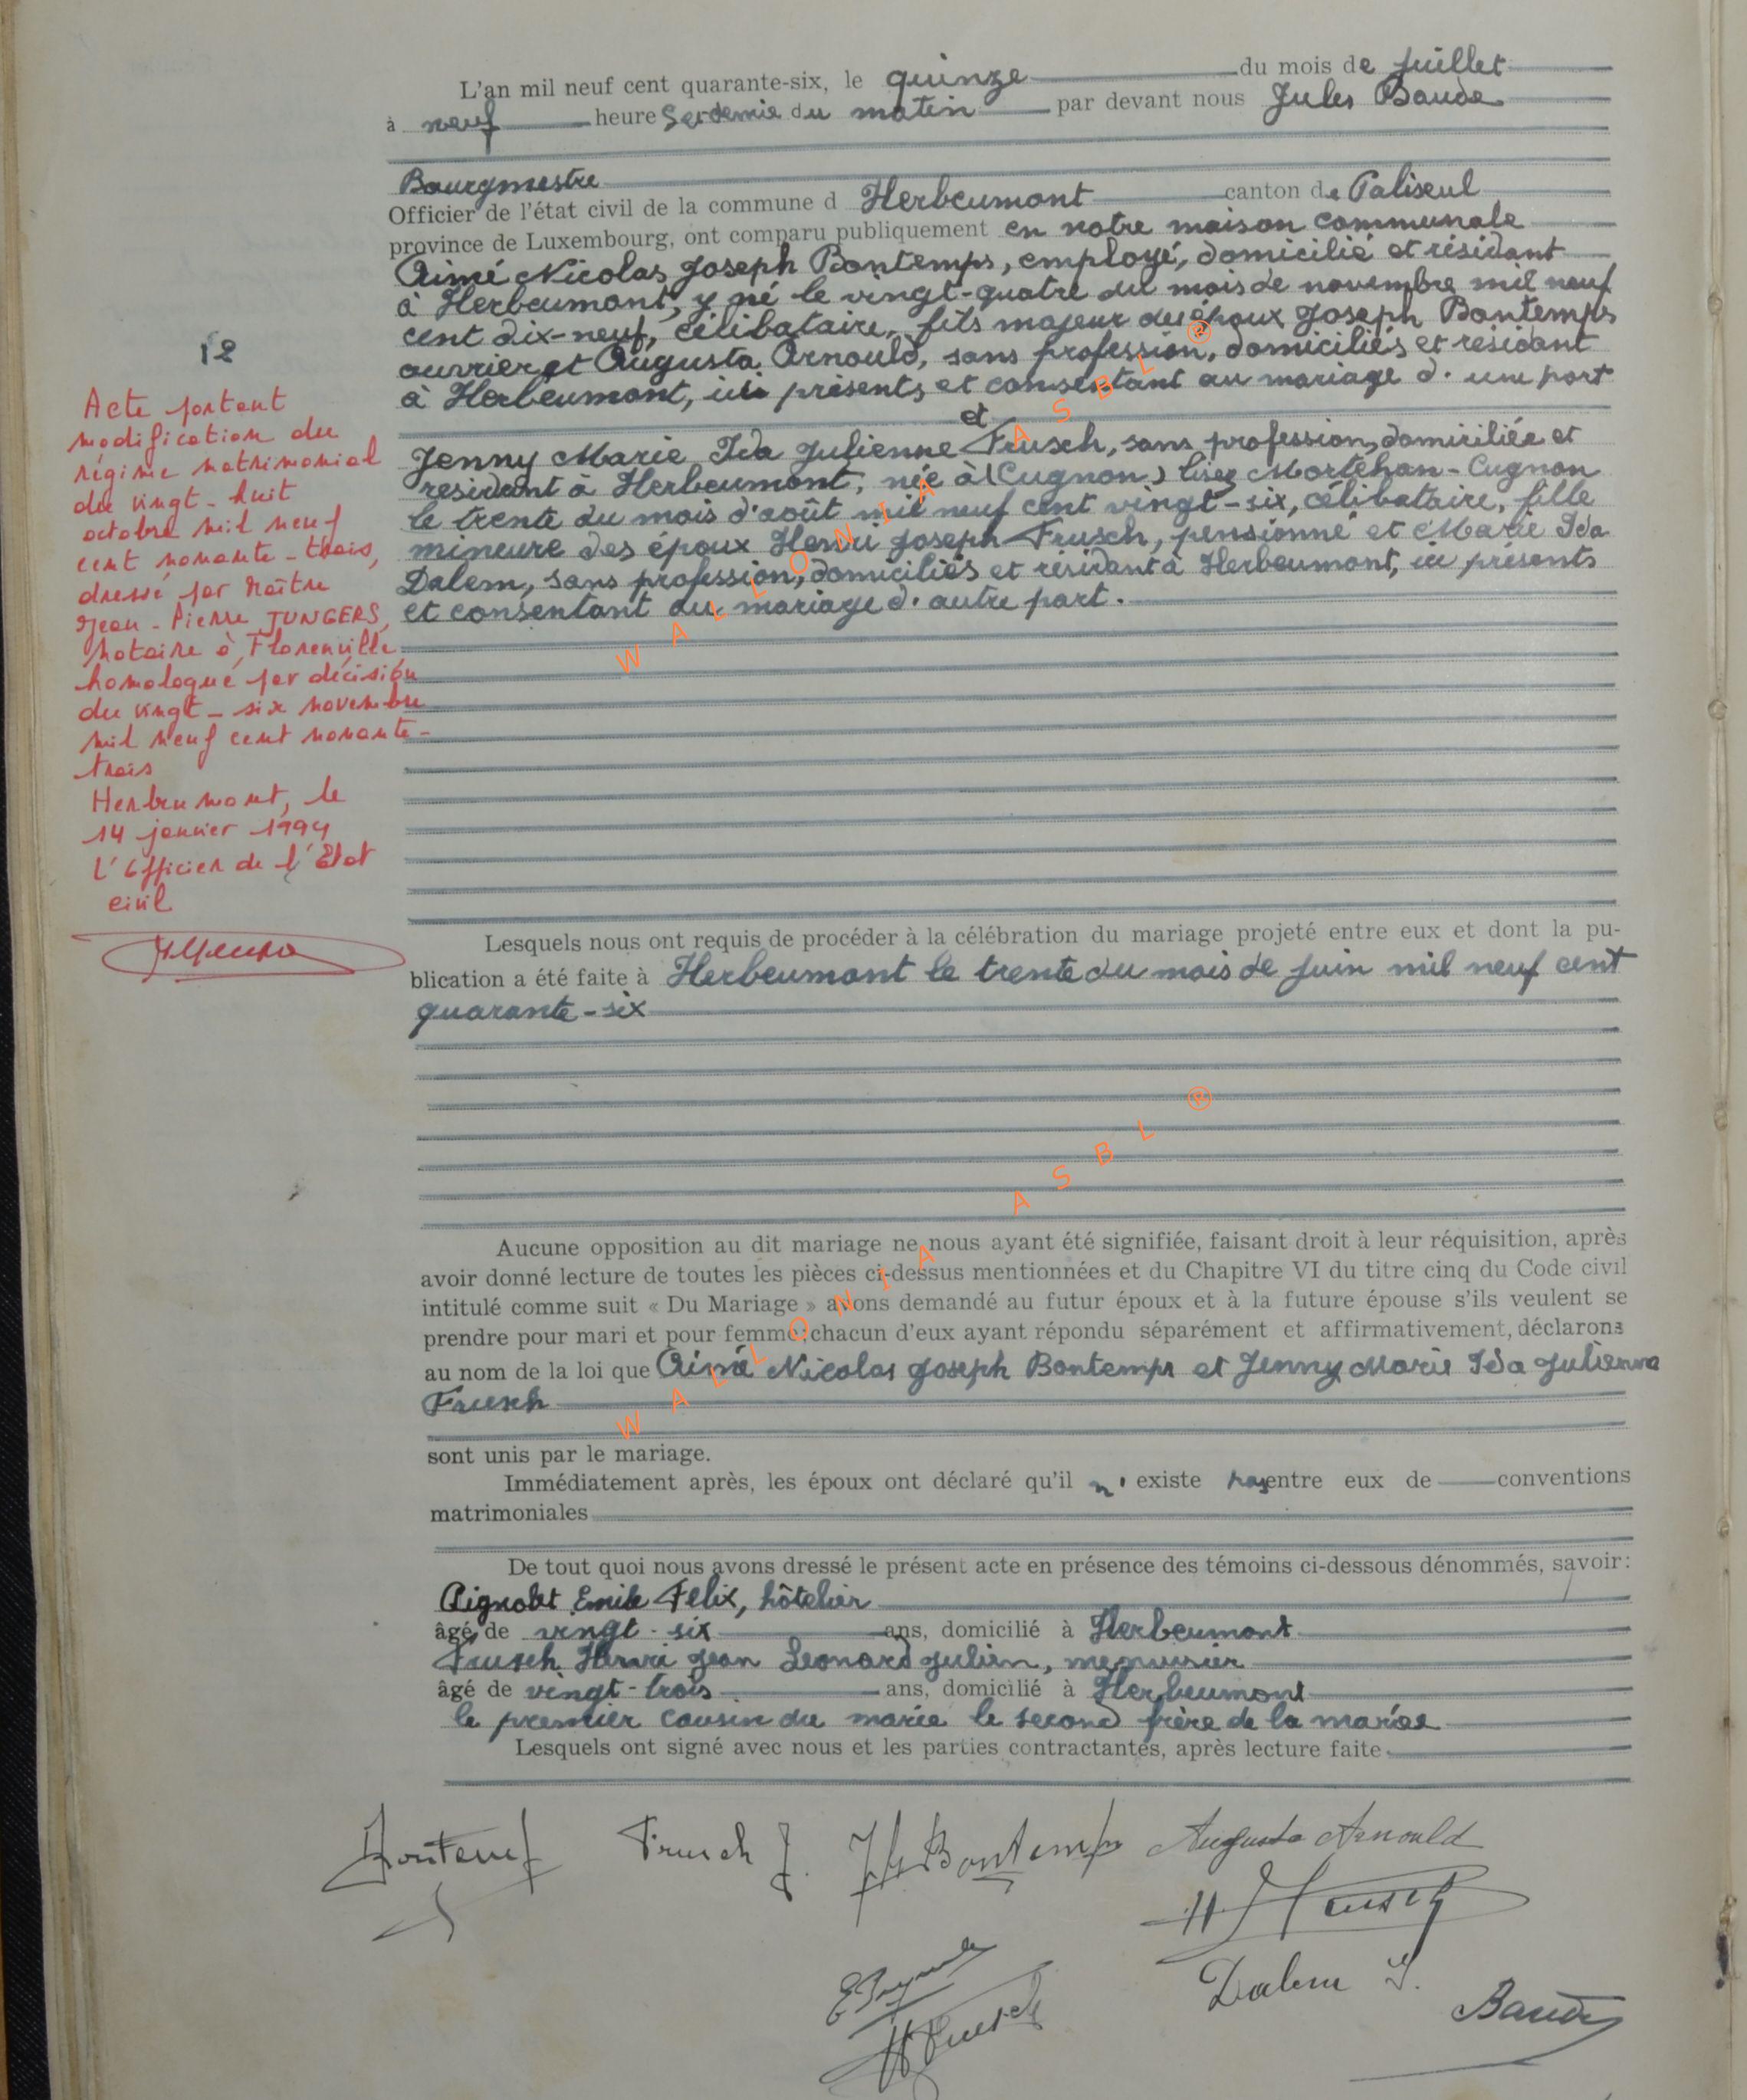 L'an mil neuf cent quarante-six, le quinze du mois de juillet
à neuf heures et demie du matin par devant nous Jules Baude
Bourgmestre
Officier de l'état civil de la commune d Herbeumont canton de Paliseul
province de Luxembourg, ont comparu publiquement en notre maison communale
Aimé Nicolas Joseph Bontemps, employé, domicilié et résidant
à Herbeumont, y né le vingt-quatre du mois de novembre mil neuf
cent dix-neuf, célibataire, fils majeur des époux Joseph Bontemps
ouvrier et Augusta Arnould, sans profession, domiciliés et résidant
à Herbeumont, ici présents et consentant au mariage d'une part
et
Jenny Marie Ida Julienne Frusch, sans profession, domiciliée et
residant à Herbeumont, née à (Cugnon) lisez Mortehan-Cugnon
le trente du mois d'août mil neuf cent vingt-six, célibataire, fille
mineure des époux Henri Joseph Frusch, pensionné et Marie Ida
Dalem, sans profession, domiciliés et résidant à Herbeumont, ici présents
et consentant au mariage d'autre part.
12
Acte portant
modification du
régime matrimonial
du vingt-huit
octobre mil neuf
cent nonante-trois,
dressé par Maître
Jean-Pierre JUNGERS,
notaire à Florenville
homologué par décision
du vingt-six novembre
mil neuf cent nonante-
trois
Herbeumont, le
14 janvier 1994
L'Officier de l'Etat
civil
Lesquels nous ont requis de procéder à la célébration du mariage projeté entre eux et dont la pu-
blication a été faite à Herbeumont le trente du mois de juin mil neuf cent
quarante-six
Aucune opposition au dit mariage ne nous ayant été signifiée, faisant droit à leur réquisition, après
avoir donné lecture de toutes les pièces ci-dessus mentionnées et du Chapitre VI du titre cinq du Code civil
intitulé comme suit « Du Mariage » avons demandé au futur époux et à la future épouse s'ils veulent se
prendre pour mari et pour femme; chacun d'eux ayant répondu séparément et affirmativement, déclarons
au nom de la loi que Aimé Nicolas Joseph Bontemps et Jenny Marie Ida Julienne
Frusch
sont unis par le mariage.
Immédiatement après, les époux ont déclaré qu'il n'existe pas entre eux de conventions
matrimoniales
De tout quoi nous avons dressé le présent acte en présence des témoins ci-dessous dénommés, savoir:
Pignolet Emile Felix, hôtelier
âgé de vingt-six ans, domicilié à Herbeumont
Frusch Henri Jean Leonard Julien, menuisier
âgé de vingt-trois ans, domicilié à Herbeumont
le premier cousin du mariée le second frère de la mariée
Lesquels ont signé avec nous et les parties contractantes, après lecture faite
Bontemps Frusch J. Bontemps Augusta Arnould
H Frusch
Dalem I.
H Frusch
Baude
WALLONIA ASBL ®
WALLONIA ASBL ®